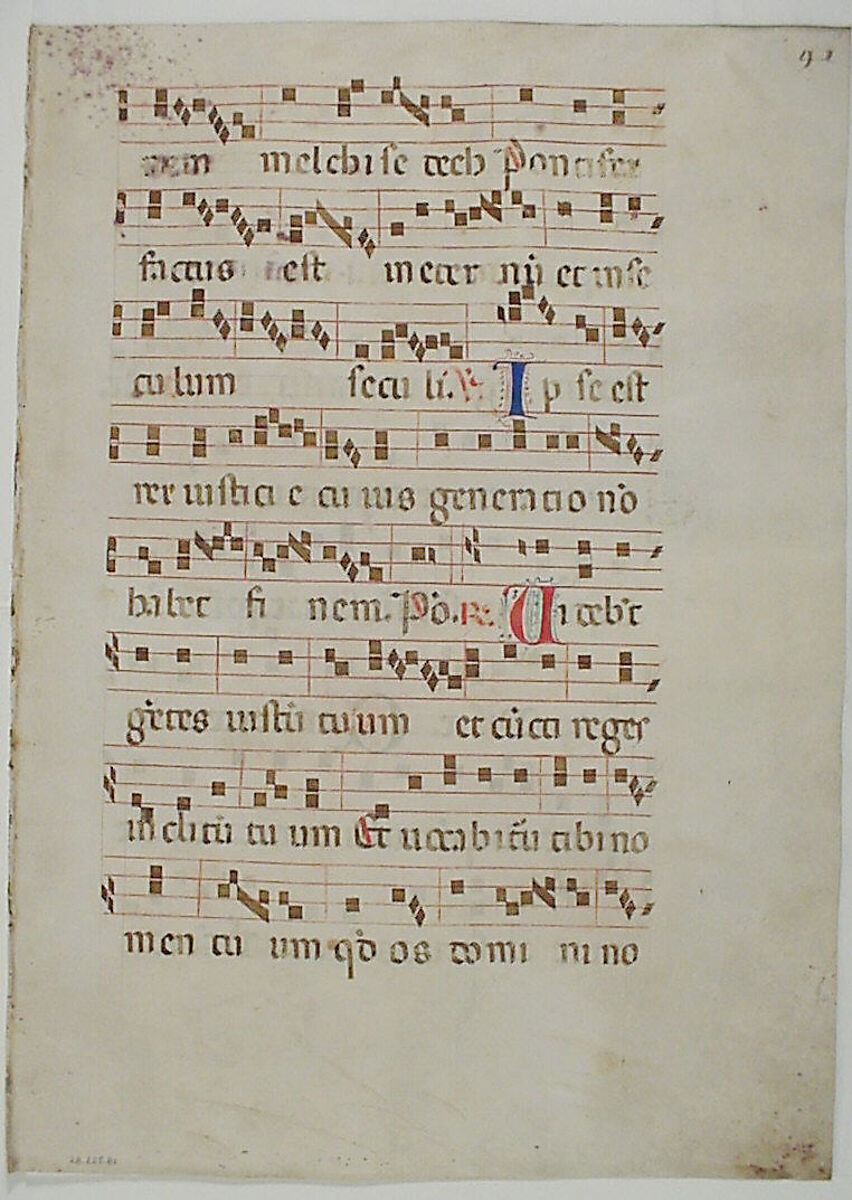 nem melchise dech Pontifex
factus est in eter nū et in se
cu lum secu li. V. I p se est
rex iusti ci e cu ius genera cio nō
habet fi nem. Pō. R. Uidebūt
gētes iustū tu um et cūcti reges
in cli tū tu um Et uocabitū tibi no
men tu um qd os domi ni no